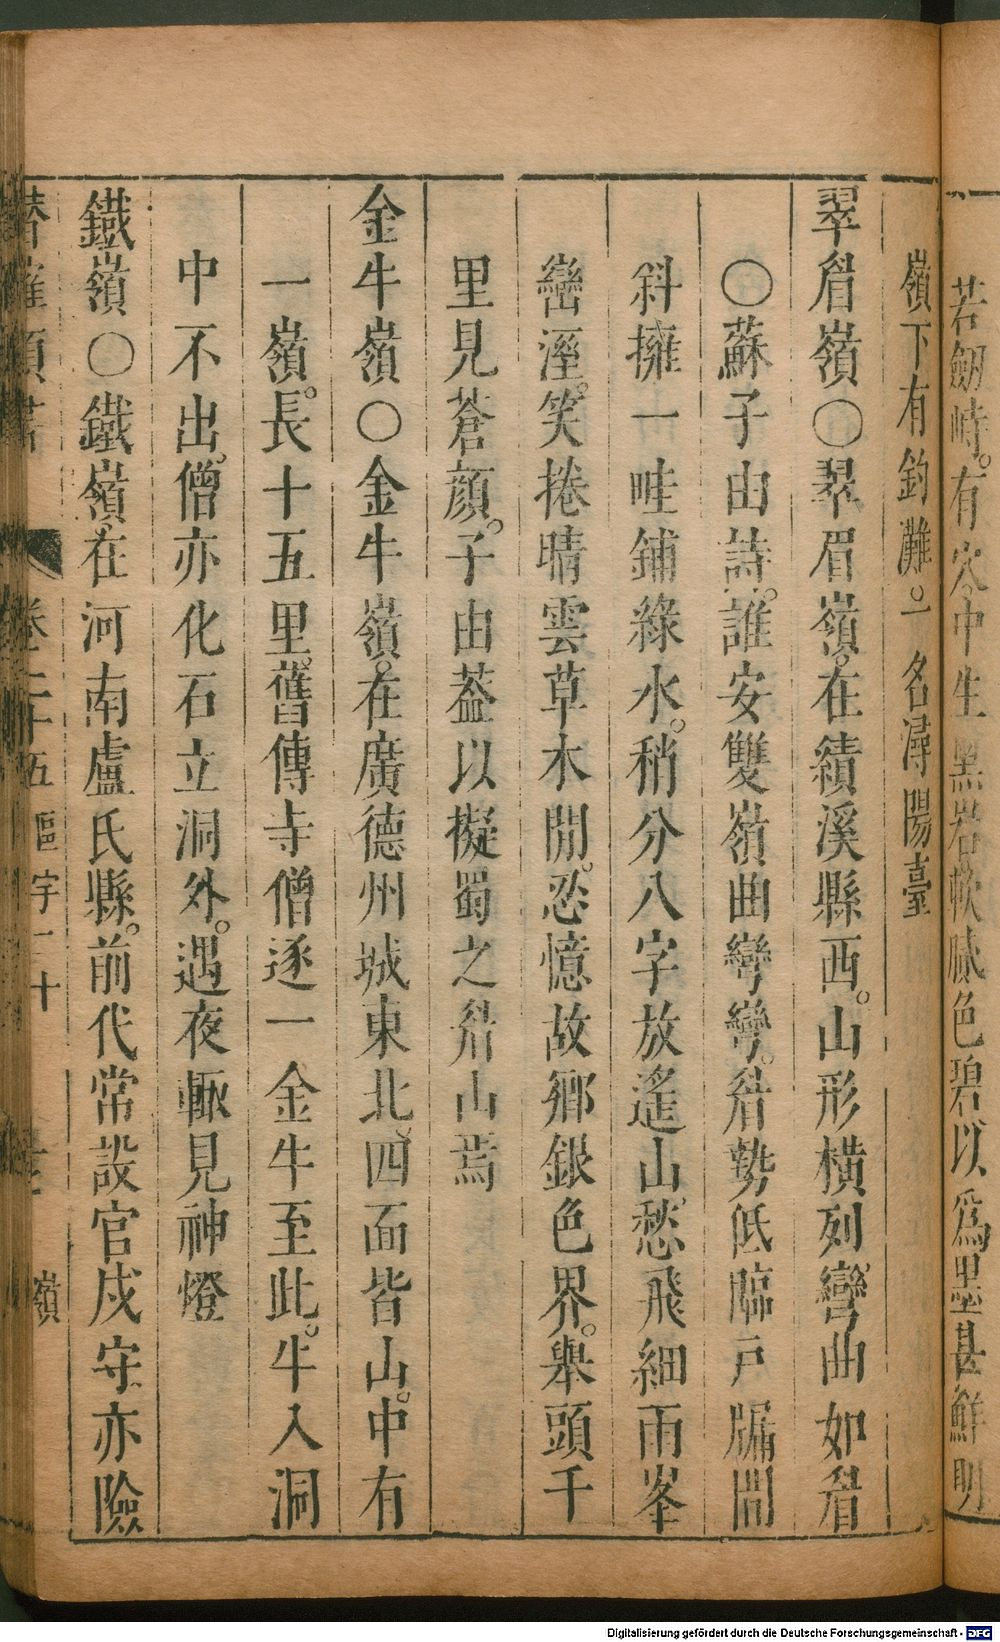 若劒峙。有穴中生黑岩軟膩色碧以爲墨甚鮮明
嶺下有釣灘。一名潯陽臺
翠眉嶺〇翠眉嶺。在績溪縣西。山形横列彎曲如眉
〇蘇子由詩。誰安雙嶺曲彎彎。眉勢低臨戸牖間
斜擁一畦鋪綠水。稍分八字放遙山。愁飛細雨峯
巒溼。笑捲晴雲草木閒。忍憶故鄉銀色界。舉頭千
里見蒼顔。子由葢以擬蜀之眉山焉
金牛嶺〇金牛嶺。在廣德州城東北。四面皆山。中有
一嶺。長十五里。舊傳寺僧逐一金牛至此。牛入洞
中不出。僧亦化石立洞外。遇夜輙見神燈
鐵嶺〇鐵嶺。在河南盧氏縣。前代常設官戍守亦險
卷二十五 區宇二十 嶺
Digitalisierung gefördert durch die Deutsche Forschungsgemeinschaft - DFG